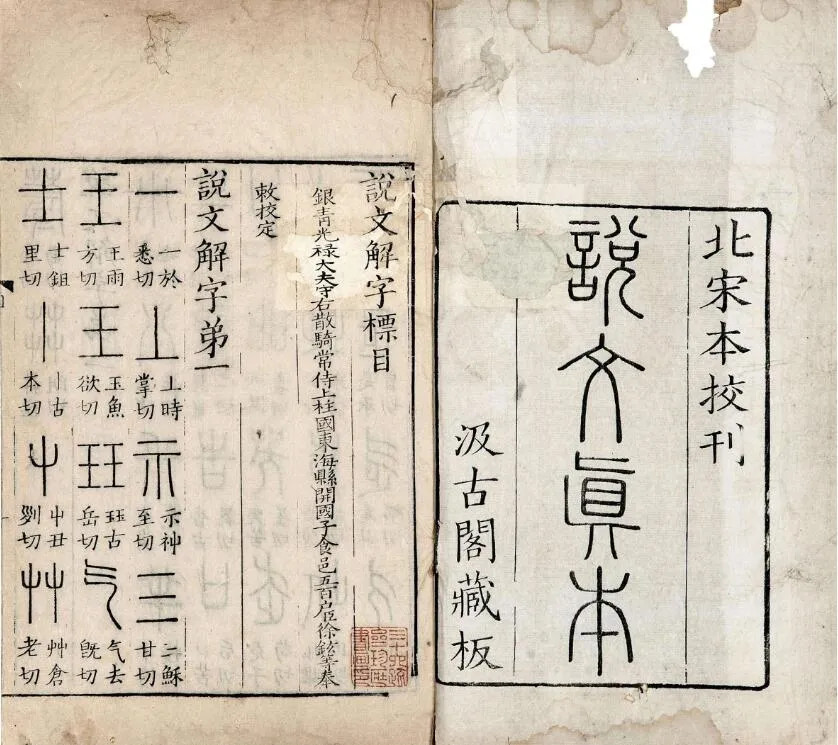 北宋本挍刊
說文眞本
汲古閣藏板
說文解字標目
銀青光禄大夫守右散騎常侍上柱國東海縣開國子食邑五百户臣徐鉉等奉
敕挍定
說文解字弟一
一 一於悉切 丄 上時掌切 示 示神至切 三 三穌甘切
王 王雨方切 玉 玉魚欲切 玨 玨古岳切 气 气去旣切
士 士鉏里切 丨 丨古本切 屮 屮丑列切 艸 艸倉老切